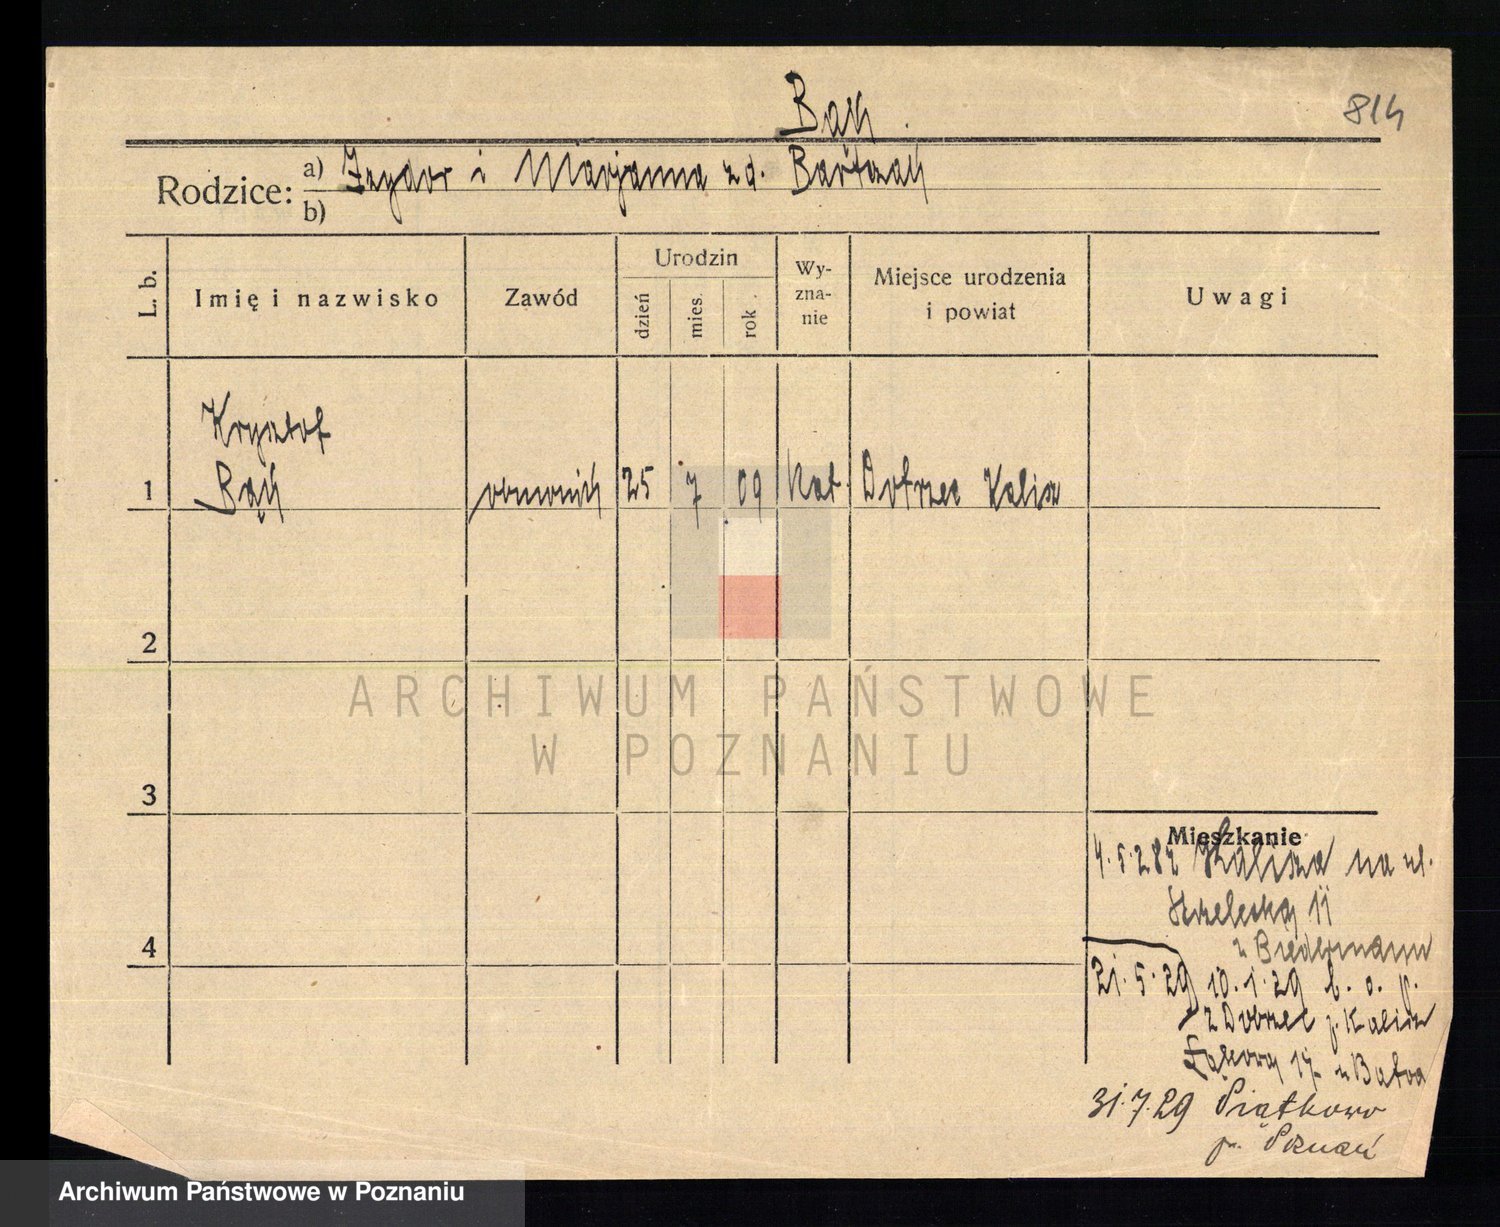 Bąk
814
Rodzice: a) Izydor i Marjanna zd. Bartczak
b)
L. b.
Imię i nazwisko
Zawód
Urodzin
dzień
mies.
rok
Wy-
zna-
nie
Miejsce urodzenia
i powiat
Uwagi
Krysztof
1 Bąk 25 7 09 Kat. Dobrzec Kalisz
2
ARCHIWUM PAŃSTWOWE
W POZNANIU
3
Mieszkanie
4.5.28 z Kalisza na ul.
Strzelecką 11
u Biedermann
4
21.5.29 10.1.29 b. o. p.
z Dobrzec p. Kalisz
Łąkową 17 u
31.7.29 Piątkowo
pw. Poznań
Archiwum Państwowe w Poznaniu